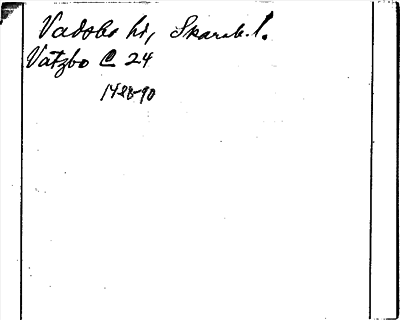 Vadsbo hd, Skarab.l.
Vatzbo C 24
1488-90